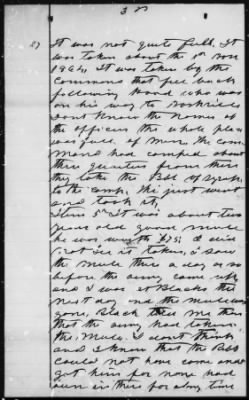 3
27 It was not quite full. It
was taken about the 1st Nov
1864, It was taken by the
Command that fell back
following Hood who was
on his way to
Dont Know the names of
the officers the whole place
was full of men, the com
mand had camped about
three quarters from there
they take the Bbl of Syrup
to the camp. He just went
and took it,
Item 5th It was about two
years old good mule
he was worth $75; I did
not see it taken, I saw
the mule the a day or so
before the army came up
and I was at Blacks the
next day and the mule was
gone, Black told me then
that the army had taken
the Mule. I dont think
and I know that the Reb
could not have come and
got him for none had
been in there for any time